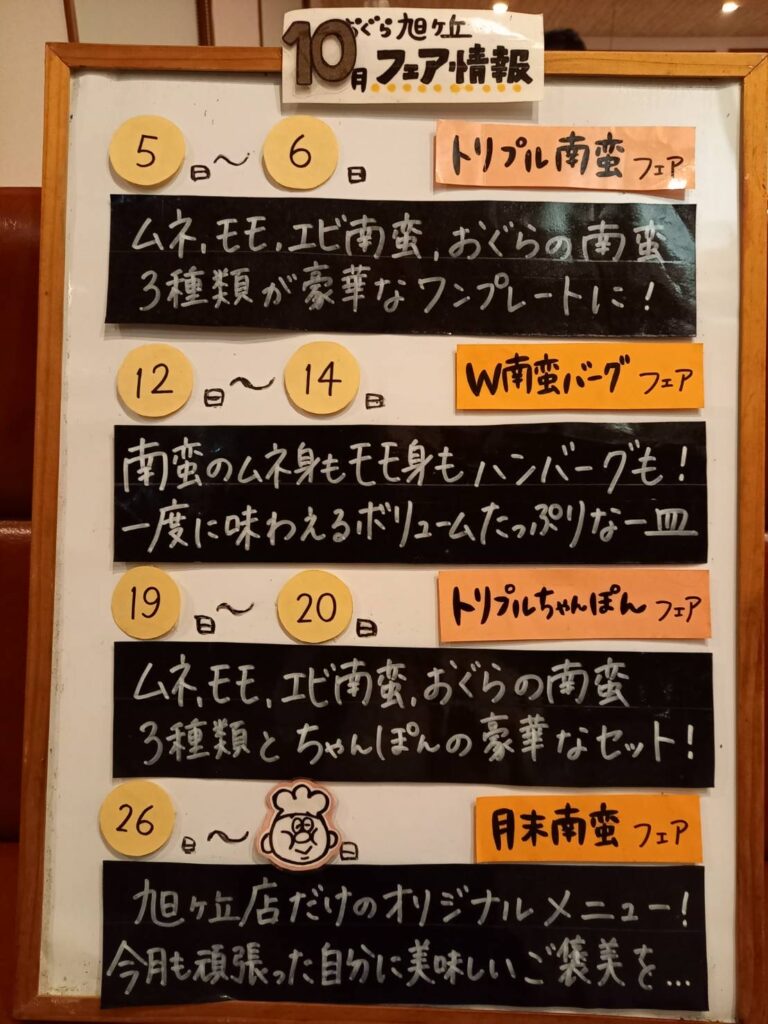 おぐら旭ヶ丘
10月フェア情報
5日〜6日 トリプル南蛮フェア
ムネ,モモ,エビ南蛮,おぐらの南蛮
3種類が豪華なワンプレートに!
12日〜14日 W南蛮バーグフェア
南蛮のムネ身もモモ身もハンバーグも!
一度に味わえるボリュームたっぷりな一皿
19日〜20日 トリプルちゃんぽんフェア
ムネ,モモ,エビ南蛮,おぐらの南蛮
3種類とちゃんぽんの豪華なセット!
26日〜日 月末南蛮フェア
旭ヶ丘店だけのオリジナルメニュー!
今月も頑張った自分に美味しいご褒美を...